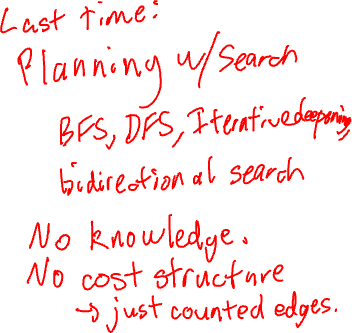 Last time:
Planning w/ Search
BFS, DFS, Iterative deepening,
bidirectional search
No knowledge.
No cost structure
→ just counted edges.